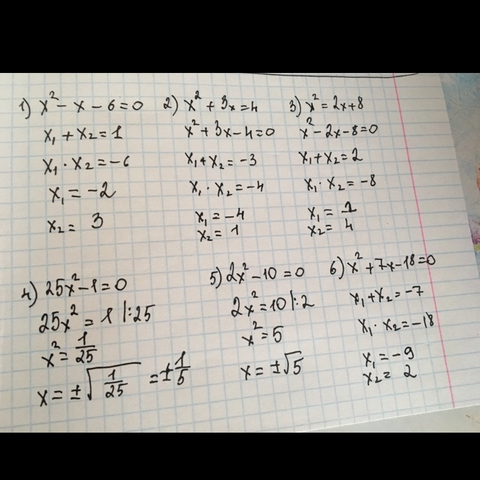 1) x² - x - 6 = 0
x₁ + x₂ = 1
x₁ · x₂ = -6
x₁ = -2
x₂ = 3
2) x² + 3x = 4
x² + 3x - 4 = 0
x₁ + x₂ = -3
x₁ · x₂ = -4
x₁ = -4
x₂ = 1
3) x² = 2x + 8
x² - 2x - 8 = 0
x₁ + x₂ = 2
x₁ · x₂ = -8
x₁ = 1
x₂ = 4
4) 25x² - 1 = 0
25x² = 1 |:25
x² = 1/25
x = ±√(1/25) = ±1/5
5) 2x² - 10 = 0
2x² = 10 |:2
x² = 5
x = ±√5
6) x² + 7x - 18 = 0
x₁ + x₂ = -7
x₁ · x₂ = -18
x₁ = -9
x₂ = 2